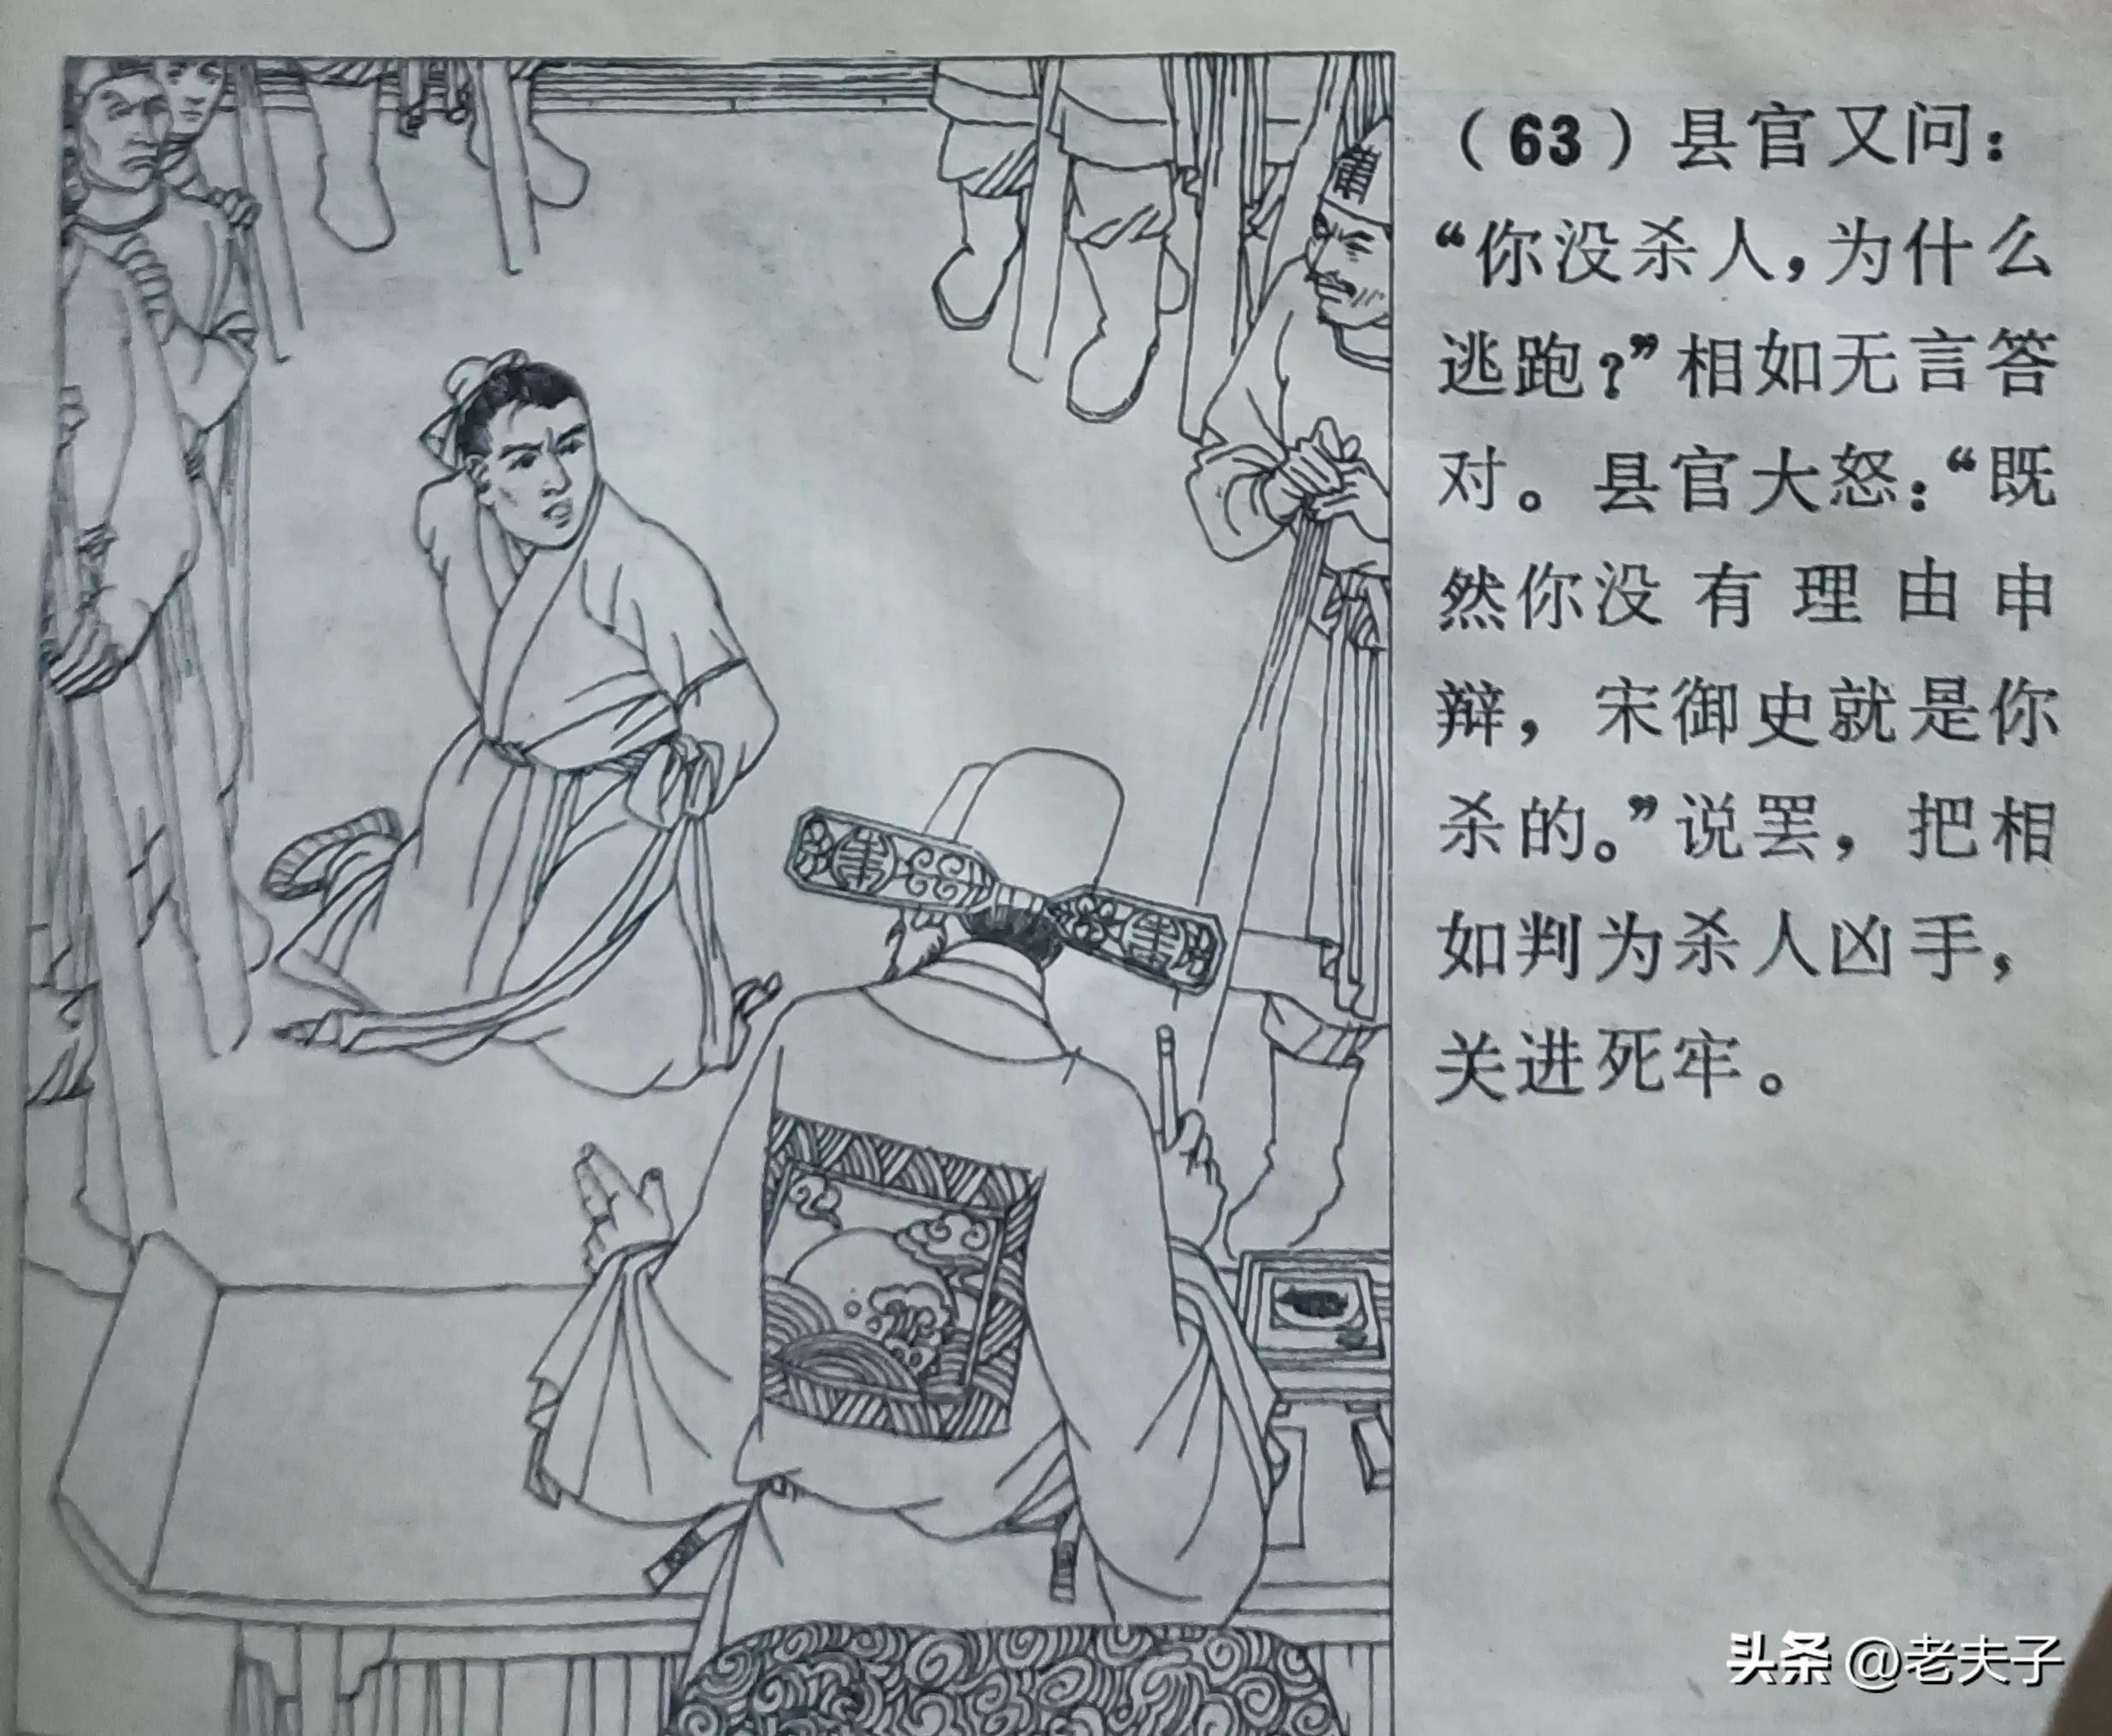 （63）县官又问：
“你没杀人，为什么
逃跑？”相如无言答
对。县官大怒：“既
然你没有理由申
辩，宋御史就是你
杀的。”说罢，把相
如判为杀人凶手，
关进死牢。
头条 @老夫子